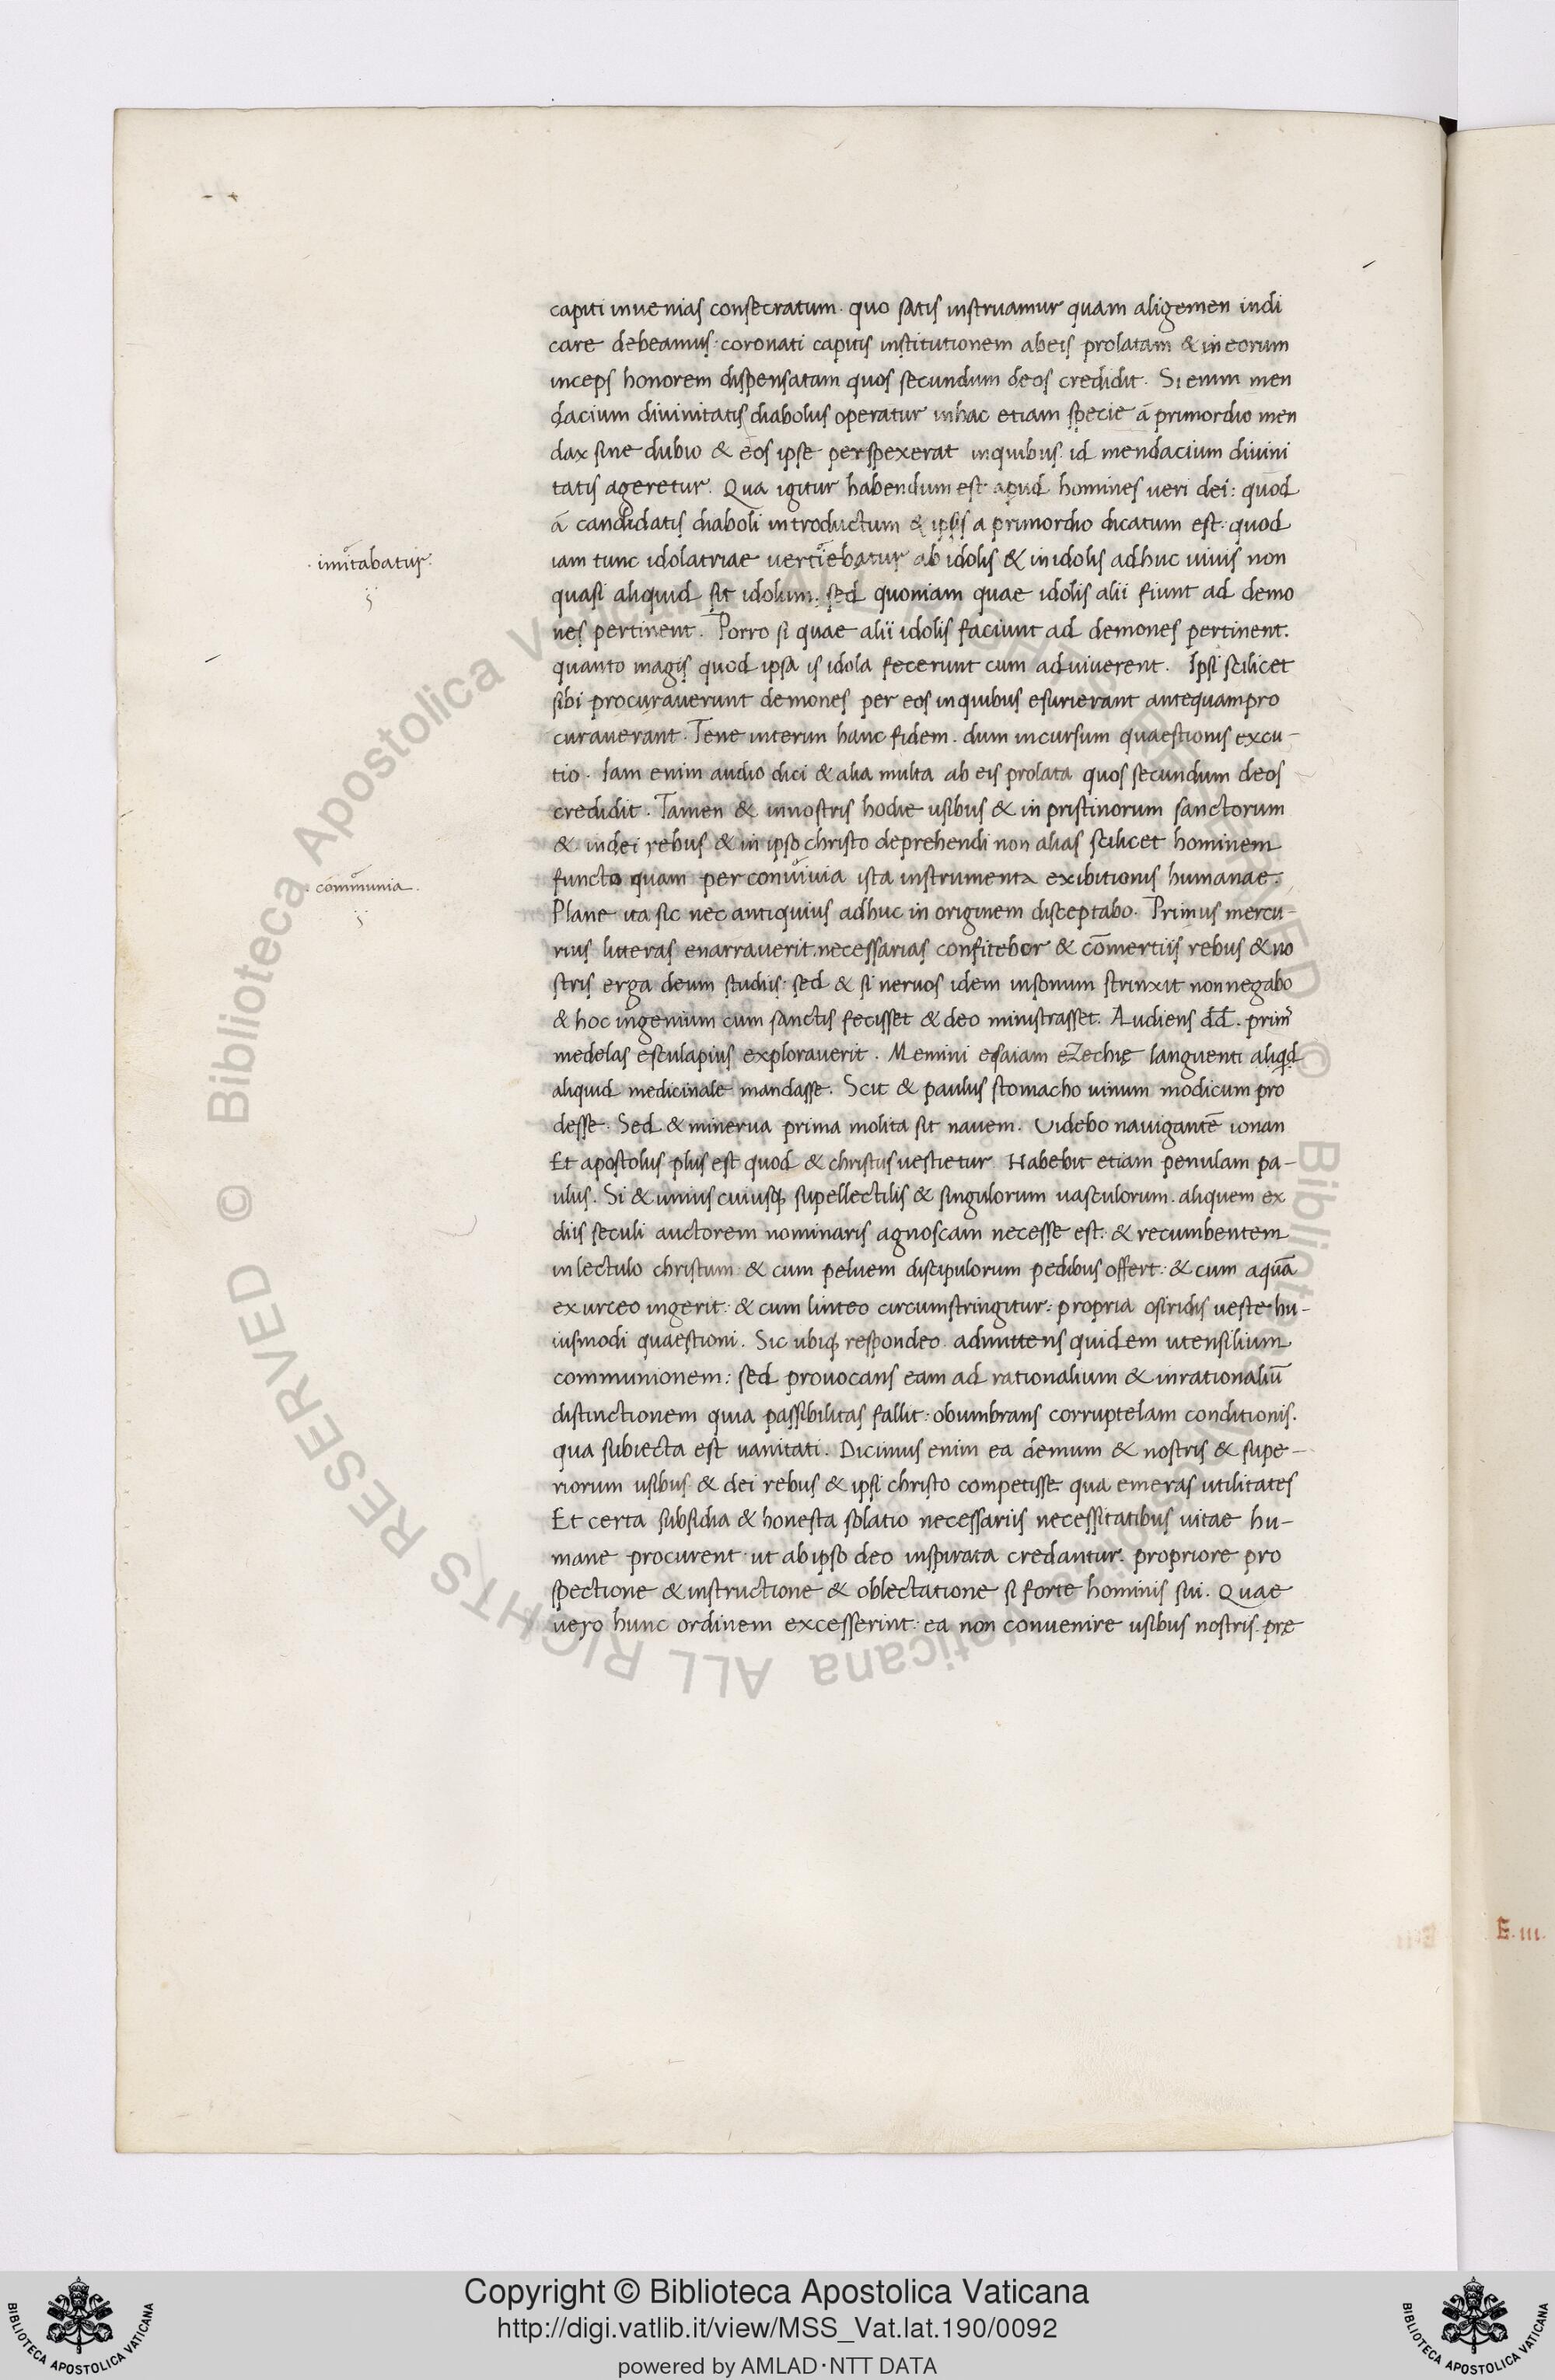 capiti invenias consecratum. quo satis instruamur quam aligemen indi
care debeamus: coronati capitis institutionem abeis prolatam & in eorum
inceps honorem dispensatam quos secundum deos credidit. Si enim men
dacium divinitatis diabolus operatur inhac etiam specie á primordio men
dax sine dubio & eos ipse perspexerat inquibus id mendacium divini
tatis ageretur. Qua igitur habendum est apud homines veri dei: quod
á candidatis diaboli introductum & ipsis a primordio dicatum est: quod
· imitabatur.
iam tunc idolatriae vertiebatur ab idolis & in idolis adhuc vivis non
quasi aliquid sit idolum: sed quoniam quae idolis alii fiunt ad demo
nes pertinent. Porro si quae alii idolis faciunt ad demones pertinent.
quanto magis quod ipsa is idola fecerunt cum adviverent. Ipsi scilicet
sibi procuraverunt demones per eos inquibus esurierant antequampro
curaverant. Tene interim hanc fidem. dum incursum quaestionis excu-
tio. Iam enim audio dici & alia multa ab eis prolata quos secundum deos
credidit. Tamen & innostris hodie usibus & in pristinorum sanctorum
& indei rebus & in ipso christo deprehendi non alias scilicet hominem
· communia.
functo quam per convivia ista instrumenta exibitionis humanae.
Plane ita sic nec antiquius adhuc in originem disceptabo. Primus mercu-
rius litteras enarraverit. necessarias confitebor & cōmertiis rebus & no
stris erga deum studiis: sed & si nervos idem insonum strinxit nonnegabo
& hoc ingenium cum sanctis fecisset & deo ministrasset. Audiens dd. prim
medelas esculapius exploraverit. Memini esaiam eZechię languenti aliqd
aliquid medicinale mandasse. Scit & paulus stomacho vinum modicum pro
desse. Sed & minerva prima molita sit navem. Videbo navigantē ionan
Et apostolus plus est quod & christus vestietur. Habebit etiam penulam pa-
ulus. Si & unius cuiusq; supellectilis & singulorum vasculorum. aliquem ex
diis seculi auctorem nominaris agnoscam necesse est: & recumbentem
inlectulo christum & cum pelvem discipulorum pedibus offert: & cum aquā
ex urceo ingerit: & cum linteo circumstringitur: propria osiridis veste hu-
iusmodi quaestioni. Sic ubiq; respondeo. admittens quidem utensilium
communionem: sed provocans eam ad rationalium & inrationaliū
distinctionem quia passibilitas fallit: obumbrans corruptelam conditionis.
qua subiecta est vanitati. Dicimus enim ea demum & nostris & supe-
riorum usibus & dei rebus & ipsi christo competisse qua emeras utilitates
Et certa subsidia & honesta solatio necessariis necessitatibus vitae hu-
mane procurent ut abipso deo inspirata credantur. propriore pro
spectione & instructione & oblectatione si forte hominis sui. Quae
vero hunc ordinem excesserint: ea non convenire usibus nostris. pre
E.iii.
© Biblioteca Apostolica Vaticana ALL RIGHTS RESERVED © Biblioteca Apostolica Vaticana ALL RIGHTS RESERVED
Copyright © Biblioteca Apostolica Vaticana
http://digi.vatlib.it/view/MSS_Vat.lat.190/0092
powered by AMLAD·NTT DATA
BIBLIOTECA APOSTOLICA VATICANA
BIBLIOTECA APOSTOLICA VATICANA